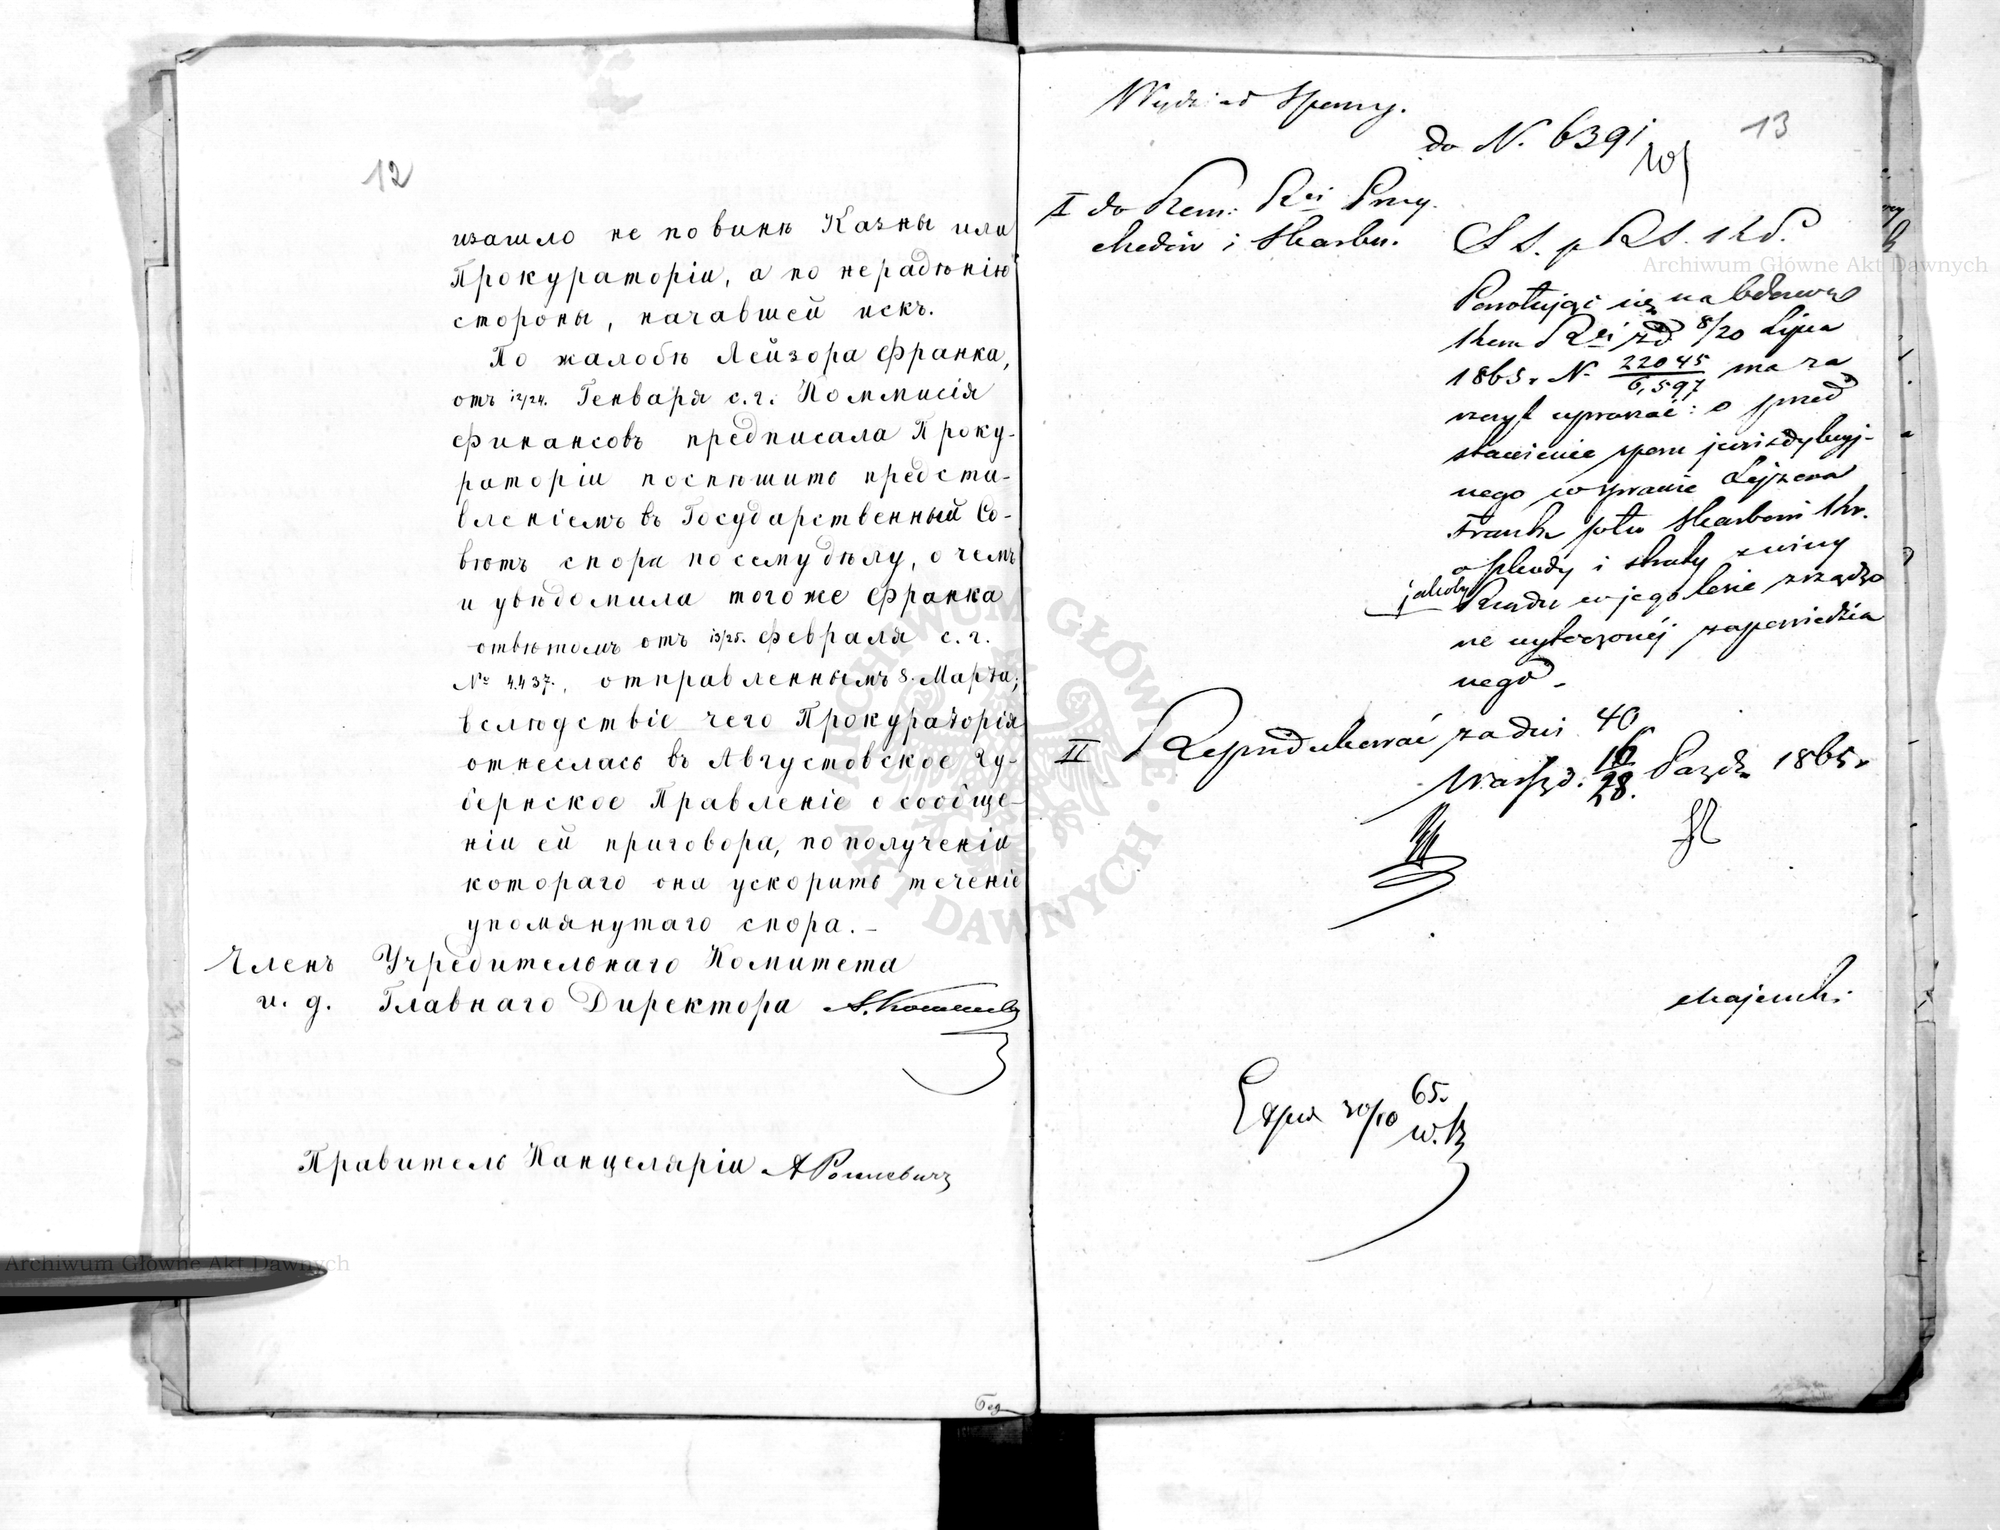 12
изашло не по винѣ Казны или
Прокураторіи, а по нерадѣнію
стороны, начавшей искъ.
По жалобѣ Лейзора Франка,
отъ 12/24. Генваря с. г. Коммисія
Финансовъ предписала Проку-
раторіи поспѣшить предста-
вленіемъ въ Государственный Со-
вѣтъ спора по сему дѣлу, о чемъ
и увѣдомила тогоже Франка
отвѣтомъ отъ 13/25. Февраля с. г.
№ 4437., отправленнымъ 8. Марта;
вслѣдствіе чего Прокураторія
отнеслась въ Августовское Гу-
бернское Правленіе о сообще-
ніи ей приговора, по полученіи
котораго она ускоритъ теченіе
упомянутаго спора. –
Членъ Учредительнаго Комитета
и. д. Главнаго Директора А. Кошелевъ
Правитель Канцеляріи
Wydział Sporny.
do N. 6391
13
I do Kom: Rei Przy
chodów i Skarbu.
S S. p RS. i KS.
Powołując się na odezwę
Kom Rei z d 8/20 Lipca
1865 r N. 22045/6,597 ma za
szczyt upraszać: o przed
stawienie sporu jurisdykcyj-
nego w sprawie Lejzora
Frank ptko Skarbowi Kr.
o szkody i straty z winy
jakoby Rządu w jego lesie zrządzo
ne wytoczonéj zapowiedzia
nego –
II Reprodukować za dni 40
Warsz. d. 16/28. Paźdz 1865 r
Majewski
Exped 30/10 65.
Архіwum Główne Akt Dawnych
Archiwum Główne Akt Dawnych
ARCHIWUM GŁÓWNE AKT DAWNYCH